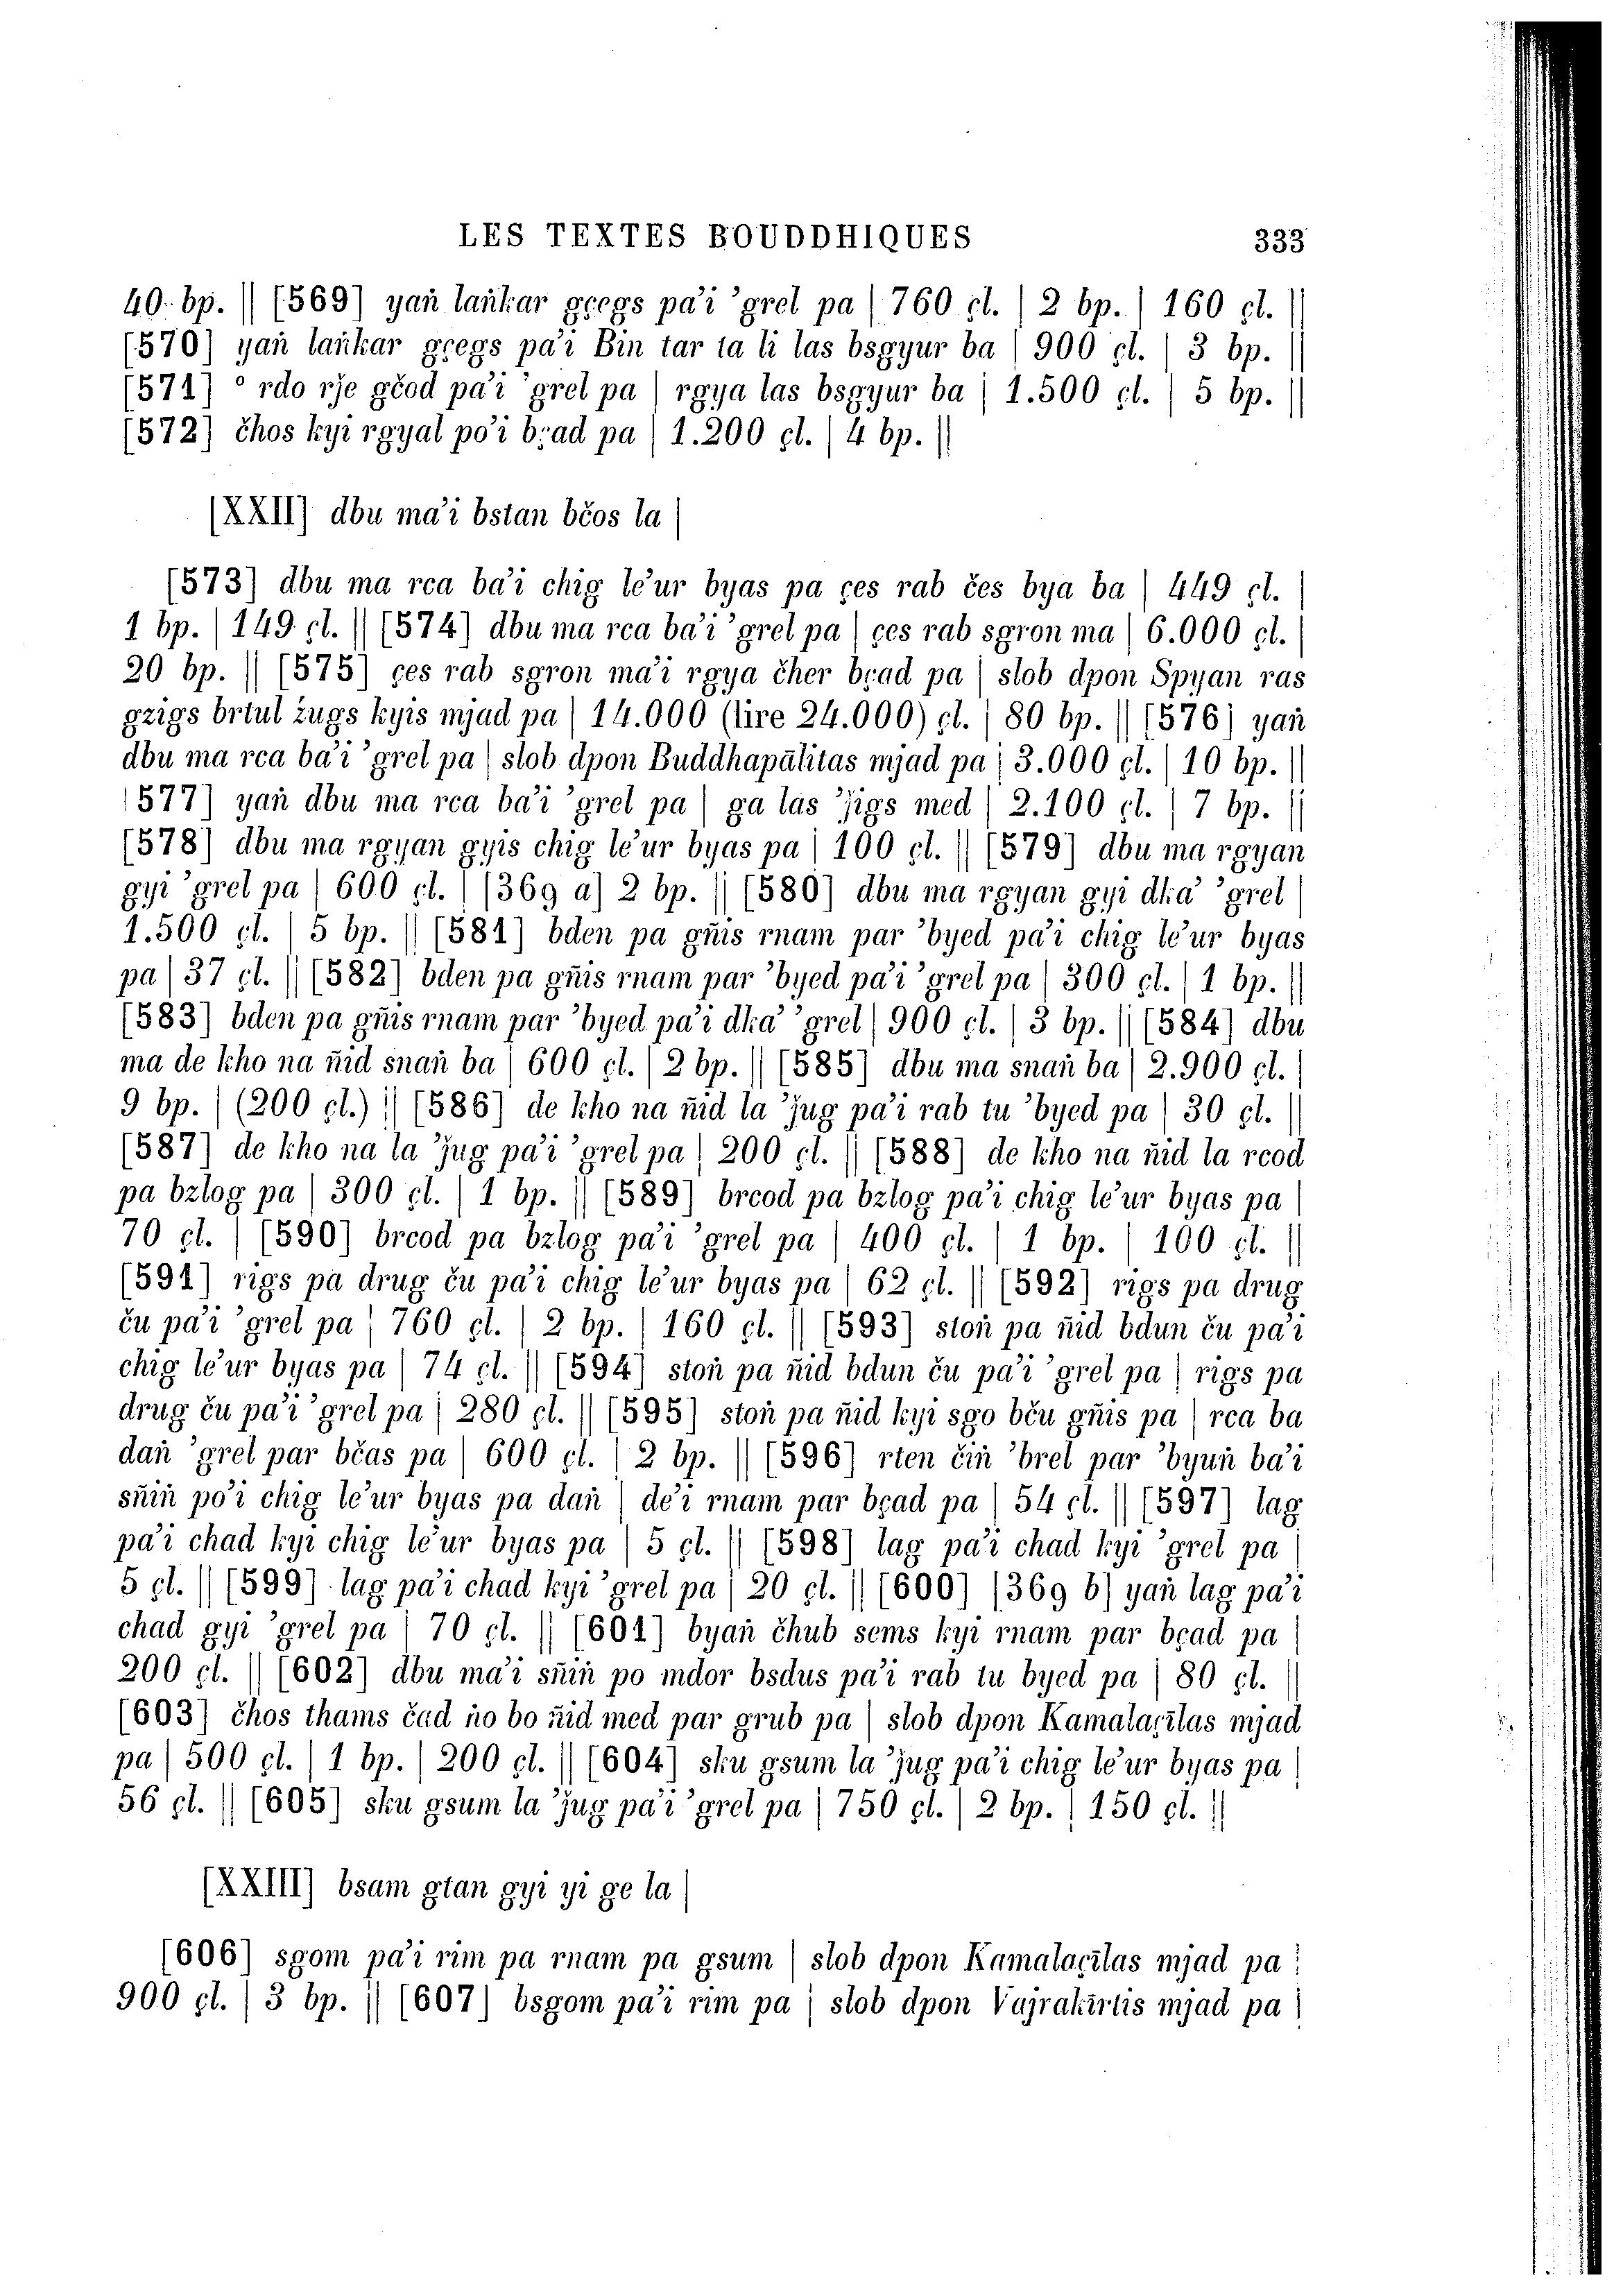 LES TEXTES BOUDDHIQUES 333
40 bp. || [569] yaṅ laṅkar gçegs pa'i 'grel pa | 760 çl. | 2 bp. | 160 çl. ||
[570] yaṅ laṅkar gçegs pa'i Bin tar ta li las bsgyur ba | 900 çl. | 3 bp. ||
[571] ° rdo rje gčod pa'i 'grel pa | rgya las bsgyur ba | 1.500 çl. | 5 bp. ||
[572] čhos kyi rgyal po'i bçad pa | 1.200 çl. | 4 bp. ||
[XXII] dbu ma'i bstan bčos la |
[573] dbu ma rca ba'i chig le'ur byas pa çes rab čes bya ba | 449 çl. |
1 bp. | 149 çl. || [574] dbu ma rca ba'i 'grel pa | çes rab sgron ma | 6.000 çl. |
20 bp. || [575] çes rab sgron ma'i rgya čher bçad pa | slob dpon Spyan ras
gzigs brtul žugs kyis mjad pa | 14.000 (lire 24.000) çl. | 80 bp. || [576] yaṅ
dbu ma rca ba'i 'grel pa | slob dpon Buddhapālitas mjad pa | 3.000 çl. | 10 bp. ||
[577] yaṅ dbu ma rca ba'i 'grel pa | ga las 'ǰigs med | 2.100 çl. | 7 bp. ||
[578] dbu ma rgyan gyis chig le'ur byas pa | 100 çl. || [579] dbu ma rgyan
gyi 'grel pa | 600 çl. | [369 a] 2 bp. || [580] dbu ma rgyan gyi dka' 'grel |
1.500 çl. | 5 bp. || [581] bden pa gñis rnam par 'byed pa'i chig le'ur byas
pa | 37 çl. || [582] bden pa gñis rnam par 'byed pa'i 'grel pa | 300 çl. | 1 bp. ||
[583] bden pa gñis rnam par 'byed pa'i dka' 'grel | 900 çl. | 3 bp. || [584] dbu
ma de kho na ñid snaṅ ba | 600 çl. | 2 bp. || [585] dbu ma snaṅ ba | 2.900 çl. |
9 bp. | (200 çl.) || [586] de kho na ñid la 'ǰug pa'i rab tu 'byed pa | 30 çl. ||
[587] de kho na la 'ǰug pa'i 'grel pa | 200 çl. || [588] de kho na ñid la rcod
pa bzlog pa | 300 çl. | 1 bp. || [589] brcod pa bzlog pa'i chig le'ur byas pa |
70 çl. | [590] brcod pa bzlog pa'i 'grel pa | 400 çl. | 1 bp. | 100 çl. ||
[591] rigs pa drug ču pa'i chig le'ur byas pa | 62 çl. || [592] rigs pa drug
ču pa'i 'grel pa | 760 çl. | 2 bp. | 160 çl. || [593] stoṅ pa ñid bdun ču pa'i
chig le'ur byas pa | 74 çl. || [594] stoṅ pa ñid bdun ču pa'i 'grel pa | rigs pa
drug ču pa'i 'grel pa | 280 çl. || [595] stoṅ pa ñid kyi sgo bču gñis pa | rca ba
daṅ 'grel par bčas pa | 600 çl. | 2 bp. || [596] rten čiṅ 'brel par 'byuṅ ba'i
sñiṅ po'i chig le'ur byas pa daṅ | de'i rnam par bçad pa | 54 çl. || [597] lag
pa'i chad kyi chig le'ur byas pa | 5 çl. || [598] lag pa'i chad kyi 'grel pa |
5 çl. || [599] lag pa'i chad kyi 'grel pa | 20 çl. || [600] [369 b] yaṅ lag pa'i
chad gyi 'grel pa | 70 çl. || [601] byaṅ čhub sems kyi rnam par bçad pa |
200 çl. || [602] dbu ma'i sñiṅ po mdor bsdus pa'i rab tu byed pa | 80 çl. ||
[603] čhos thams čad ṅo bo ñid med par grub pa | slob dpon Kamalaçīlas mjad
pa | 500 çl. | 1 bp. | 200 çl. || [604] sku gsum la 'ǰug pa'i chig le'ur byas pa |
56 çl. || [605] sku gsum la 'ǰug pa'i 'grel pa | 750 çl. | 2 bp. | 150 çl. ||
[XXIII] bsam gtan gyi yi ge la |
[606] sgom pa'i rim pa rnam pa gsum | slob dpon Kamalaçīlas mjad pa |
900 çl. | 3 bp. || [607] bsgom pa'i rim pa | slob dpon Vajrakīrtis mjad pa |